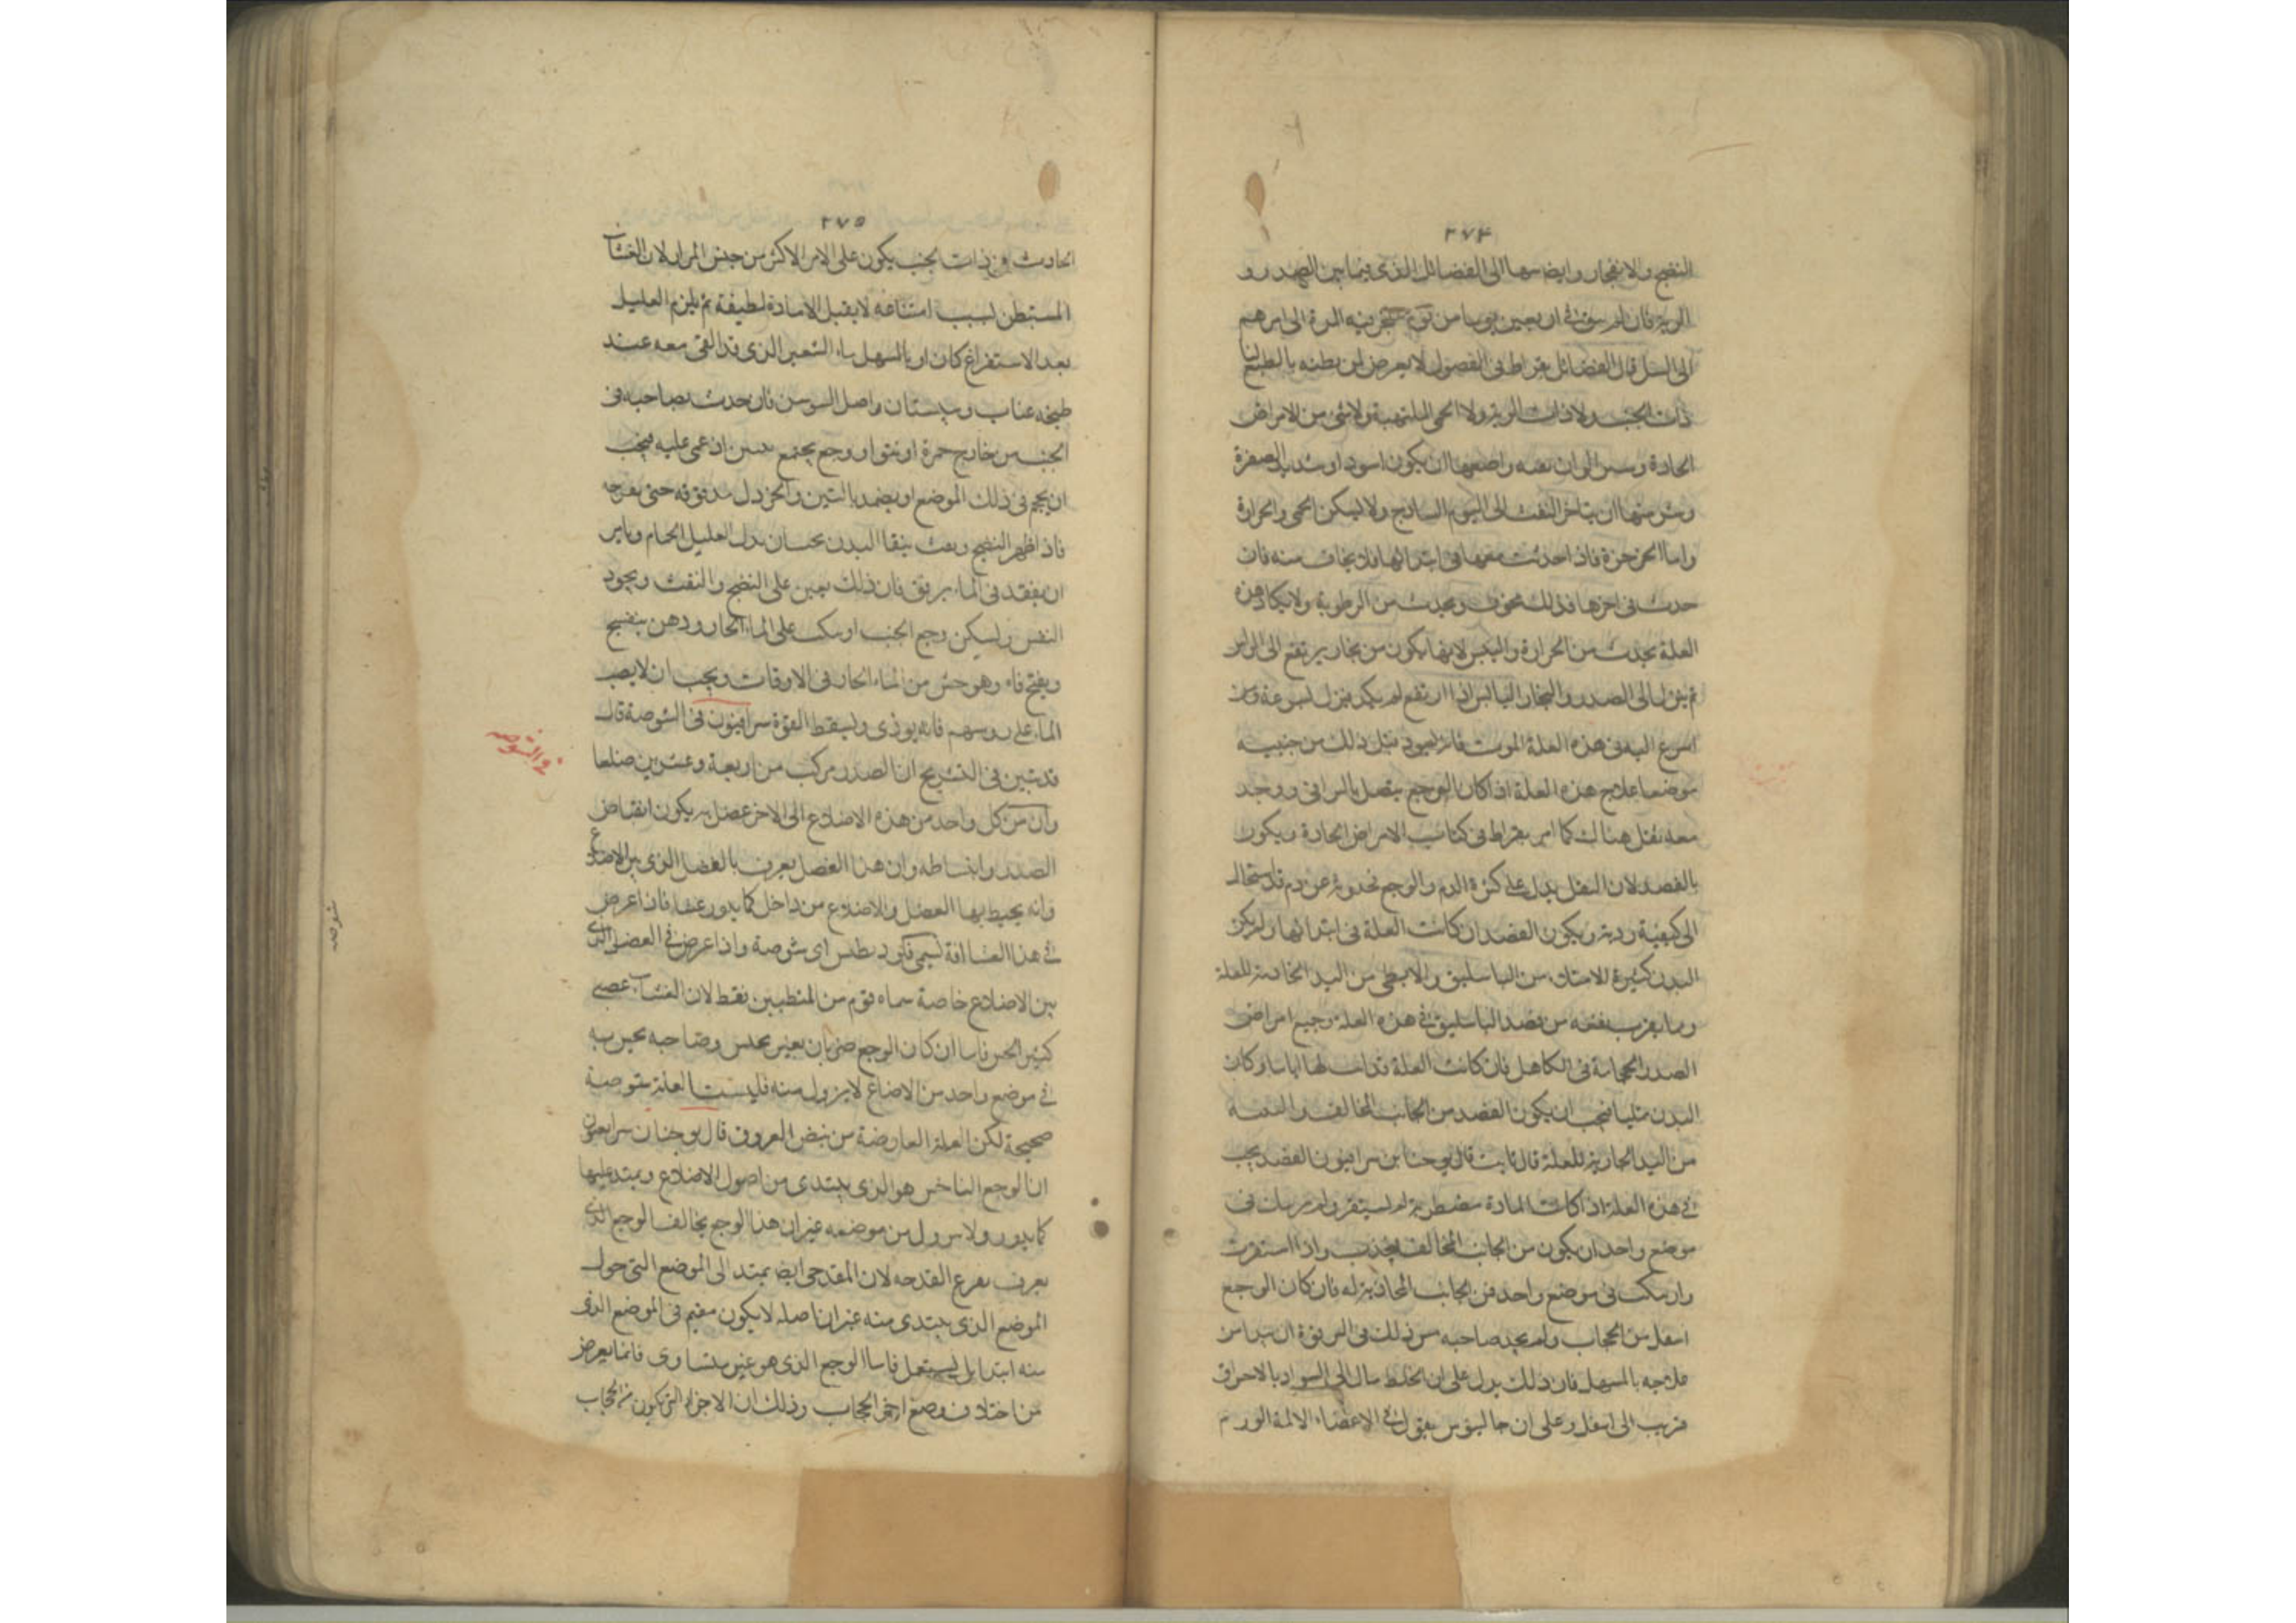 ٢٧٤
النضج والانفجار وايضا منها الى الفضائل الذى فيما بين الصدر و
الرية فان لم ينق فى اربعين يوما من يوم تنفجر فيه المدة الى امرهم
الى السل قال الفضائل بقراط فى الفصول لا يعرض لمن بطنه بالطبع لينا
ذات الجنب ولا ذات الرية ولا الحمى الملتهبة ولا شئ من الامراض
الحادة وسر الوان نفثه واصعبها ان يكون اسود او شديد الصفرة
وشر منها ان يتاخر النفث الى اليوم السابع ولا ليسكن الحمى والحرارة
واما الخرخرة فاذا حدثت معها فى ابتدائها فلا يخاف منه فان
حدث فى اخرها فذلك مخوف ويحدث من الرطوبة ولا يكاد هذه
العلة يحدث من الحرارة واليبس لانها يكون من بخار يرتفع الى الراس
ثم ينزل الى الصدر والبخار اليابس اذا ارتفع لم يكد ينزل بسرعة ومن
اسرع اليه فى هذه العلة الموت فانه يسود مثل ذلك من جنبيه
موضعا علاج هذه العلة اذا كان الوجع يتصل بالتراقى ووجد
معه ثقل هناك كما امر بقراط فى كتاب الامراض الحادة ويكون
بالفصد لان الثقل يدل على كثرة الدم والوجع بحدوثه عن دم قد استحال
الى كيفية ردية ويكون الفصد ان كانت العلة فى ابتدائها ولم يكن
البدن كثيرة الامتلاء من الباسليق والابطى من اليد المحاذية للعلة
ومما يقرب نفعه من فصد الباسليق فى هذه العلة وجميع امراض
الصدر الحجامة فى الكاهل فان كانت العلة قد اتت لها ايام او كان
البدن ممتليا فيجب ان يكون الفصد من الجانب المخالف والتتمه
من اليد المحاذية للعلة قال ثابت قال يوحنا بن سرافيون الفصد يجب
فى هذه العلة اذا كانت المادة مضطربة لم يستقر ولم يرسا فى
موضع واحد ان يكون من الجانب المخالف ليجذب واذا استقرت
وارتبكت فى موضع واحد فمن الجانب المحاذية له فان كان الوجع
اسفل من الحجاب ولم يجد صاحبه مس ذلك فى الترقوة ان يبدا من
علاجه بالمسهل فان ذلك يدل على ان الخلط مال الى السواد بالاحراق
قريب الى اسفل وعلى ان جالينوس يقول فى الاعضاء الالمة الورم
٢٧٥
الحادث فى ذات الجنب يكون على الامر الاكثر من جنس المرار لان الغشاء
المستبطن لسبب امتناعه لا يقبل الا مادة لطيفة ثم يلزم العليل
بعد الاستفراغ كان او بالمسهل ماء الشعير الذى قد القى معه عند
طبخه عناب وسبستان واصل السوسن فان حدث بصاحبه فى
الجنب من خارج حمرة او نتو او وجع يجتمع حين اذا غمى عليه فيجب
ان يحجم فى ذلك الموضع او يضمد بالتين والخردل مدقوقه حتى يقرحه
فاذا ظهر النضج وبعث بنقا البدن يحسان يدل العليل الحمام ويامر
ان يقعد فى الماء برفق فان ذلك يعين على النضج والنفث ويجود
النفس ويسكن وجع الجنب او يكب على الماء الحار ودهن بنفسج
ويفتح فاه وهو حس من الماء الحار فى الاوقات ويجب ان لا يصب
الماء على رؤسهم فانه يوذى وليسقط القوة سرافيون فى الشوصة قال
قد تبين فى التشريح ان الصدر مركب من اربعة وعشرين ضلعا
وان من كل واحد من هذه الاضلاع الى الاخر عضل به يكون انقباض
الصدر وانبساطه وان هذا العضل يعرف بالعضل الذى بين الاضلاع
وانه يحيط بهذا العضل والاضلاع من داخل كما يدور غشاء فان اعرض
فى هذا الغشاء افة تسمى فلورىطس اى شوصة واذا عرض فى العضل الذى
بين الاضلاع خاصة سماه قوم من المتطببين نقط لان الغشاء عصبى
كثير الحس فاما ان كان الوجع ضربان بغير نخس وصاحبه يحس به
فى موضع واحد من الاضلاع لا يزول منه فليست العلة شوصة
صحيحة لكن العلة العارضة من نبض العروق قال يوحنا بن سرافيون
ان الوجع الناخس هو الذى يبتدى من اصول الاضلاع ويمتد عليها
كما يدور ولا يزول من موضعه غير ان هذا الوجع يخالف الوجع الذى
يعرف بقرع القدحه لان المقدحى ايضا يمتد الى الموضع التى حول
الموضع الذى يبتدى منه غير ان اصله لا يكون مقيم فى الموضع الذى
منه ابتدا بل يستعمل فاما الوجع الذى هو غير متساوى فانما يعرض
من اختلاف وضع اجزاء الحجاب وذلك ان الاجزاء التى يكون من الحجاب
فى الشوصه
شوصه